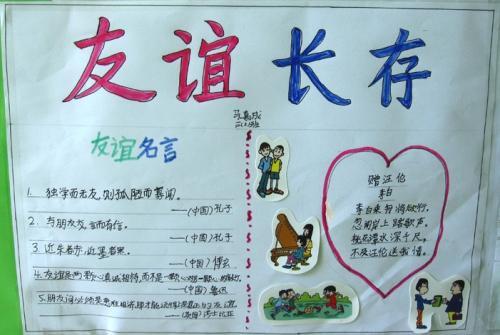 友谊长存
友谊名言
1. 独学而无友,则孤陋而寡闻。
——(中国)孔子
2. 与朋友交,言而有信。
——(中国)孔子
3. 近朱者赤,近墨者黑。
——(中国)傅玄
4. 友谊是两颗心真诚相待,而不是一颗心对另一颗心的敲打。
——(中国)鲁迅
5. 朋友间必须是患难相济,
赠汪伦
李白
李白乘舟将欲行,
忽闻岸上踏歌声。
桃花潭水深千尺,
不及汪伦送我情。